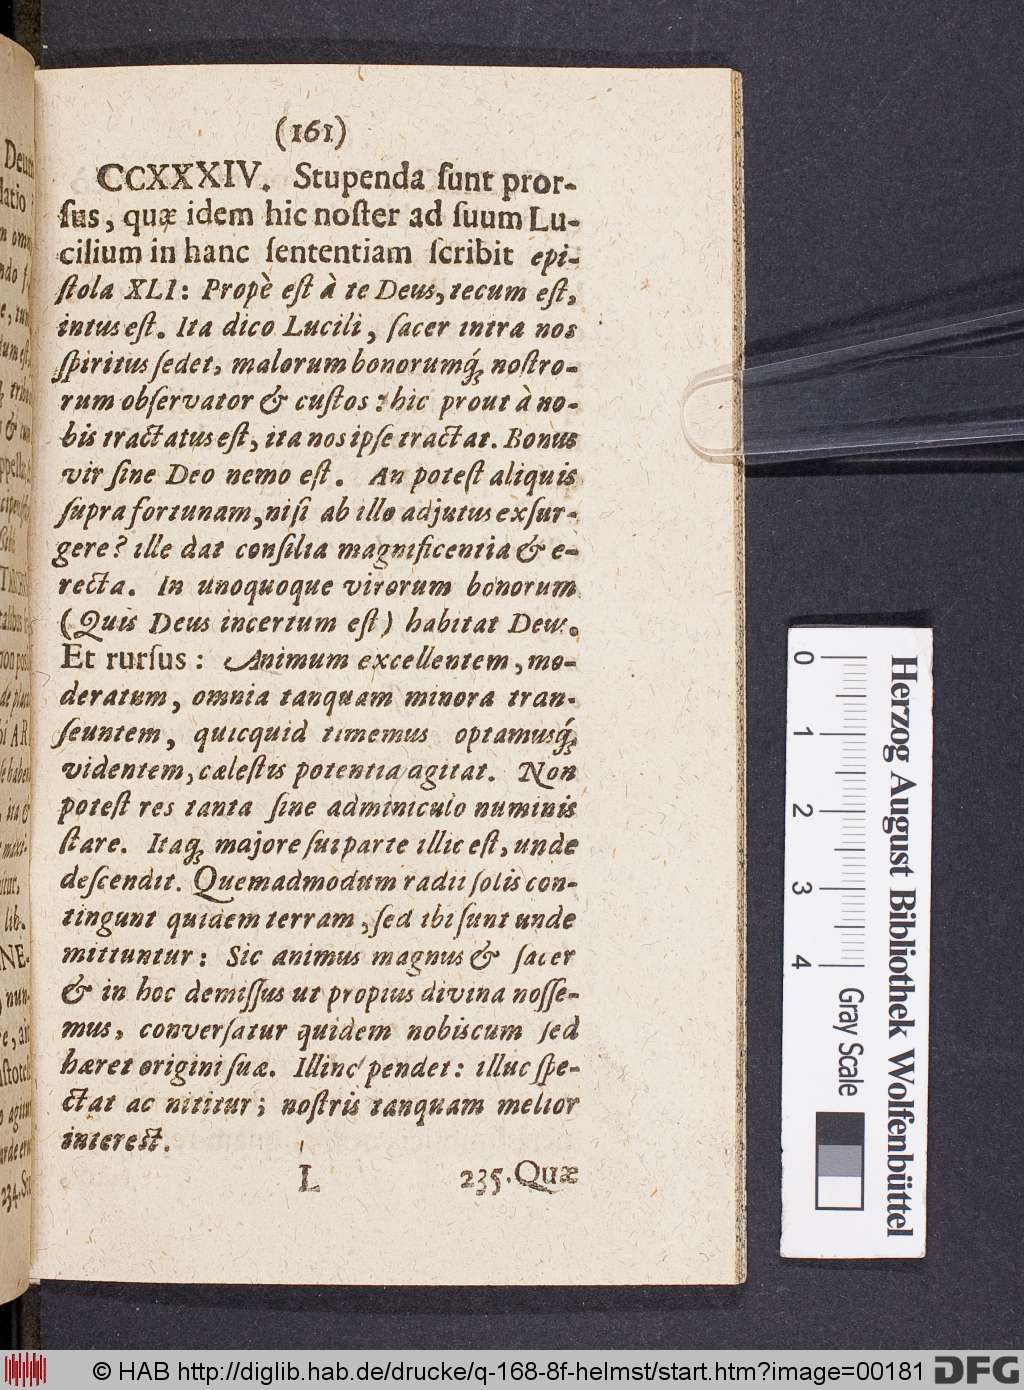 (161)
CCXXXIV. Stupenda ſunt pror-
ſus, quæ idem hic noſter ad ſuum Lu-
cilium in hanc ſententiam ſcribit epi-
ſtola XLI: Propè eſt à te Deus, tecum eſt,
intus eſt. Ita dico Lucili, ſacer intra nos
ſpiritus ſedet, malorum bonorumq́ꝫ noſtro-
rum obſervator & cuſtos: hic prout à no-
bis tractatus eſt, ita nos ipſe tractat. Bonus
vir ſine Deo nemo eſt. An poteſt aliquis
ſupra fortunam, niſi ab illo adjutus exſur-
gere? ille dat conſilia magnificentia & e-
recta. In unoquoque virorum bonorum
(Quis Deus incertum eſt) habitat Deus.
Et rurſus: Animum excellentem, mo-
deratum, omnia tanquam minora tran-
ſeuntem, quicquid timemus optamusq́ꝫ
videntem, cæleſtis potentia agitat. Non
poteſt res tanta ſine adminiculo numinis
ſtare. Itaqꝫ majore ſui parte illic eſt, unde
deſcendit. Quemadmodum radii ſolis con-
tingunt quidem terram, ſed ibi ſunt unde
mittuntur: Sic animus magnus & ſacer
& in hoc demiſſus ut propius divina noſſe-
mus, converſatur quidem nobiscum ſed
hæret origini ſuæ. Illinc pendet: illuc ſpe-
ctat ac nititur; noſtris tanquam melior
intereſt.
L 235. Quæ
Herzog August Bibliothek Wolfenbüttel
0 1 2 3 4 Gray Scale
© HAB http://diglib.hab.de/drucke/q-168-8f-helmst/start.htm?image=00181 DFG